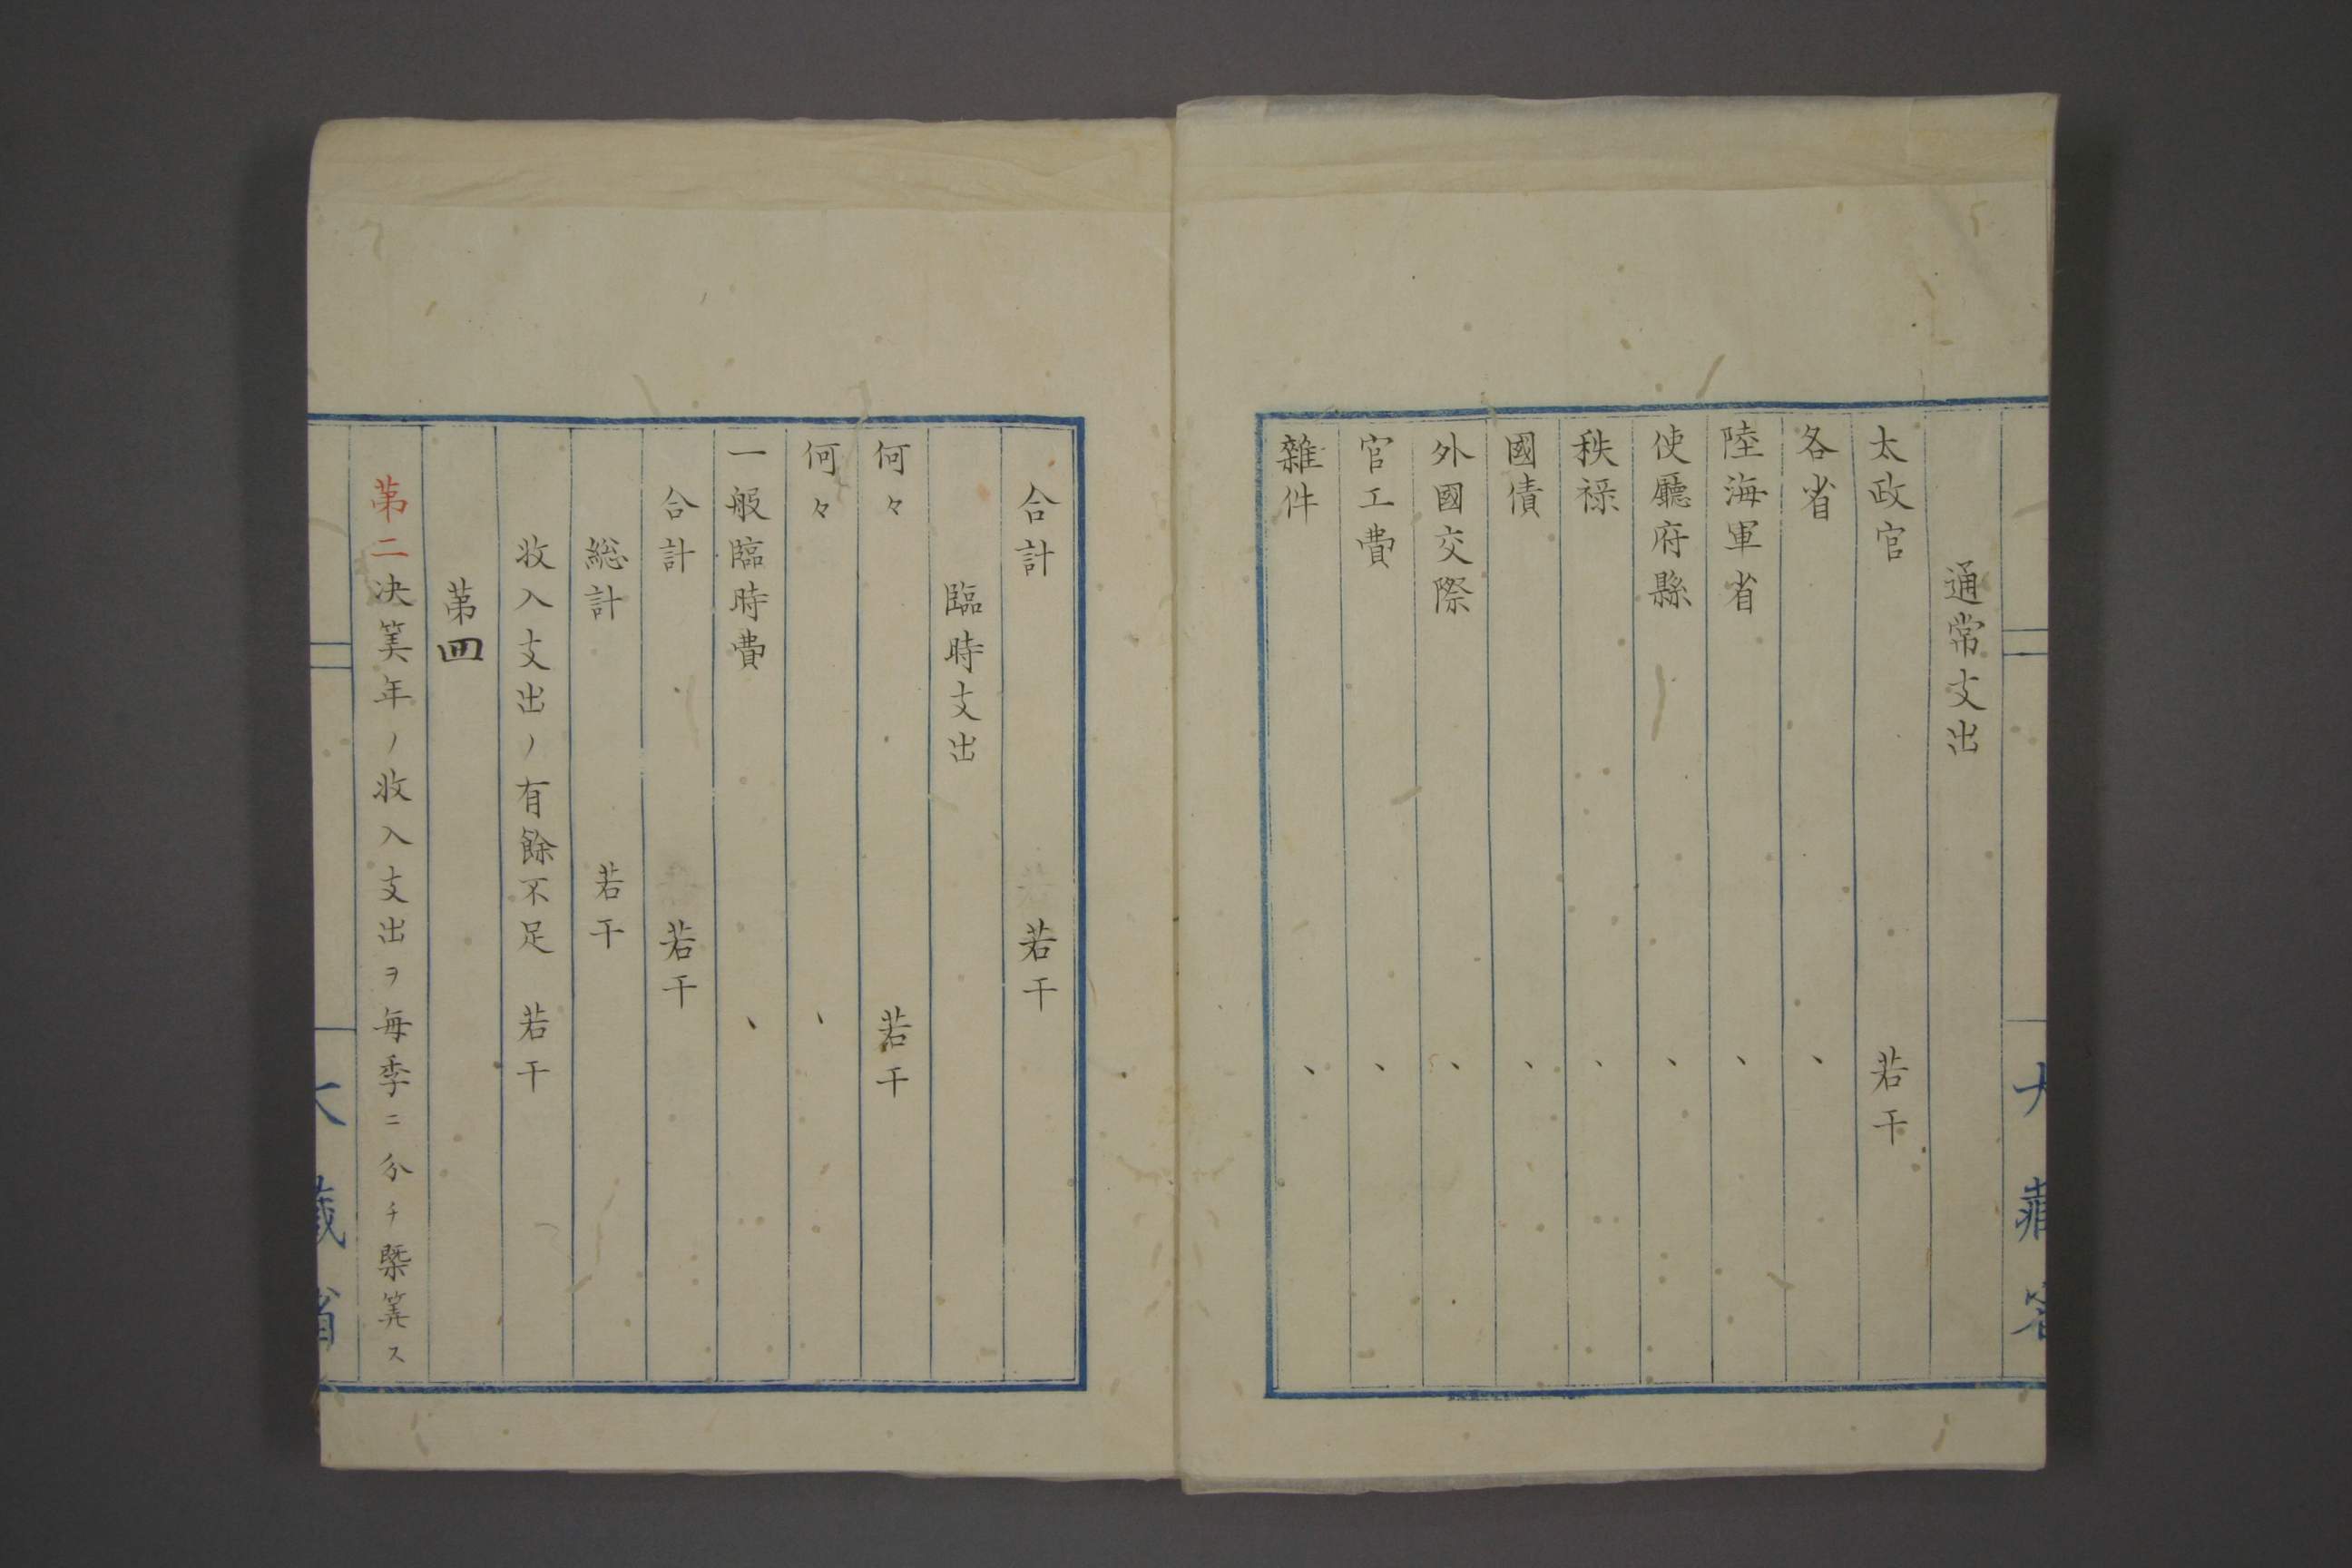 通常支出
太政官 若干
各省 、
陸海軍省 、
使廳府縣 、
秩禄 、
國債 、
外國交際 、
官工費 、
雜件 、
合計 若干
臨時支出
何々 若干
何々 、
一般臨時費 、
合計 若干
総計 若干
收入支出ノ有餘不足 若干
第四
第二决筭年ノ收入支出ヲ毎季ニ分チ槩筭ス
大藏省